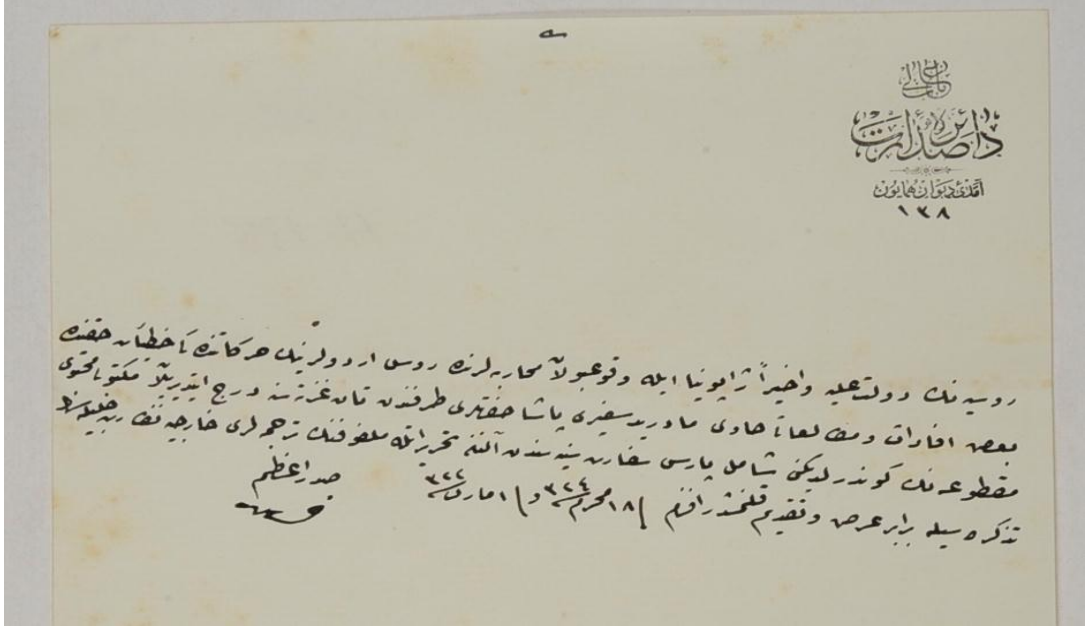 باب عالی
دائرهٔ صدارت
آمدئ دیوان همایون
١٣٨
روسیه نك دولت علیه و اخیراً ژاپونیا ایله وقوعبولان محاربه لرنده روس اردولرینك حركاتنه حقنده
بعض افاداتی و مطالعاتی حاوی مادرید سفیری پاشا حضرتلری طرفندن تان غزته سنه درج ایتدیریلان مكتوبی محتوی
مقطوعه نك كوندرلدیكنی شامل پارس سفارت سنیه سندن آلنان تحریرات ایله ملفوفنك ترجمه لری خارجیه نظارت جلیله سنك
تذكره سیله برابر عرض و تقدیم قلنمشدر افندم فی ١٨ محرم سنه ٣٢٤ و فی ١ مارت سنه ٣٢٢
صدر اعظم